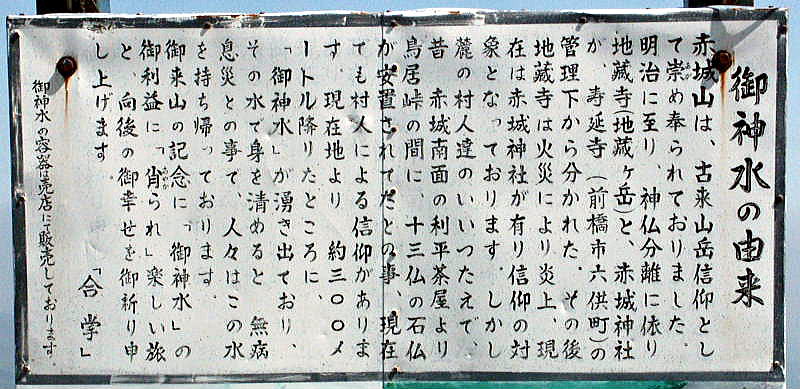 御神水の由来
赤城山は、古来山岳信仰とし
て崇め奉られておりました。
明治に至り 神仏分離に依り
地蔵寺(地蔵ヶ岳)と、赤城神社
が、寿延寺(前橋市六供町)の
管理下から分かれた。その後
地蔵寺は火災により炎上、現
在は赤城神社が有り信仰の対
象となっております。しかし
麓の村人達のいいつたえで、
昔 赤城南面の利平茶屋より
鳥居峠の間に、十三仏の石仏
が安置されてたとの事、現在
でも村人による信仰がありま
す。現在地より 約三〇〇メ
ートル降りたところに、
「御神水」が湧き出ており、
その水で身を清めると 無病
息災との事で、人々はこの水
を持ち帰っております。
御来山の記念に「御神水」の
御利益に「肖られ」楽しい旅
と、向後の御幸せを御祈り申
し上げます。
「合学」
御神水の容器は売店にて販売しております。